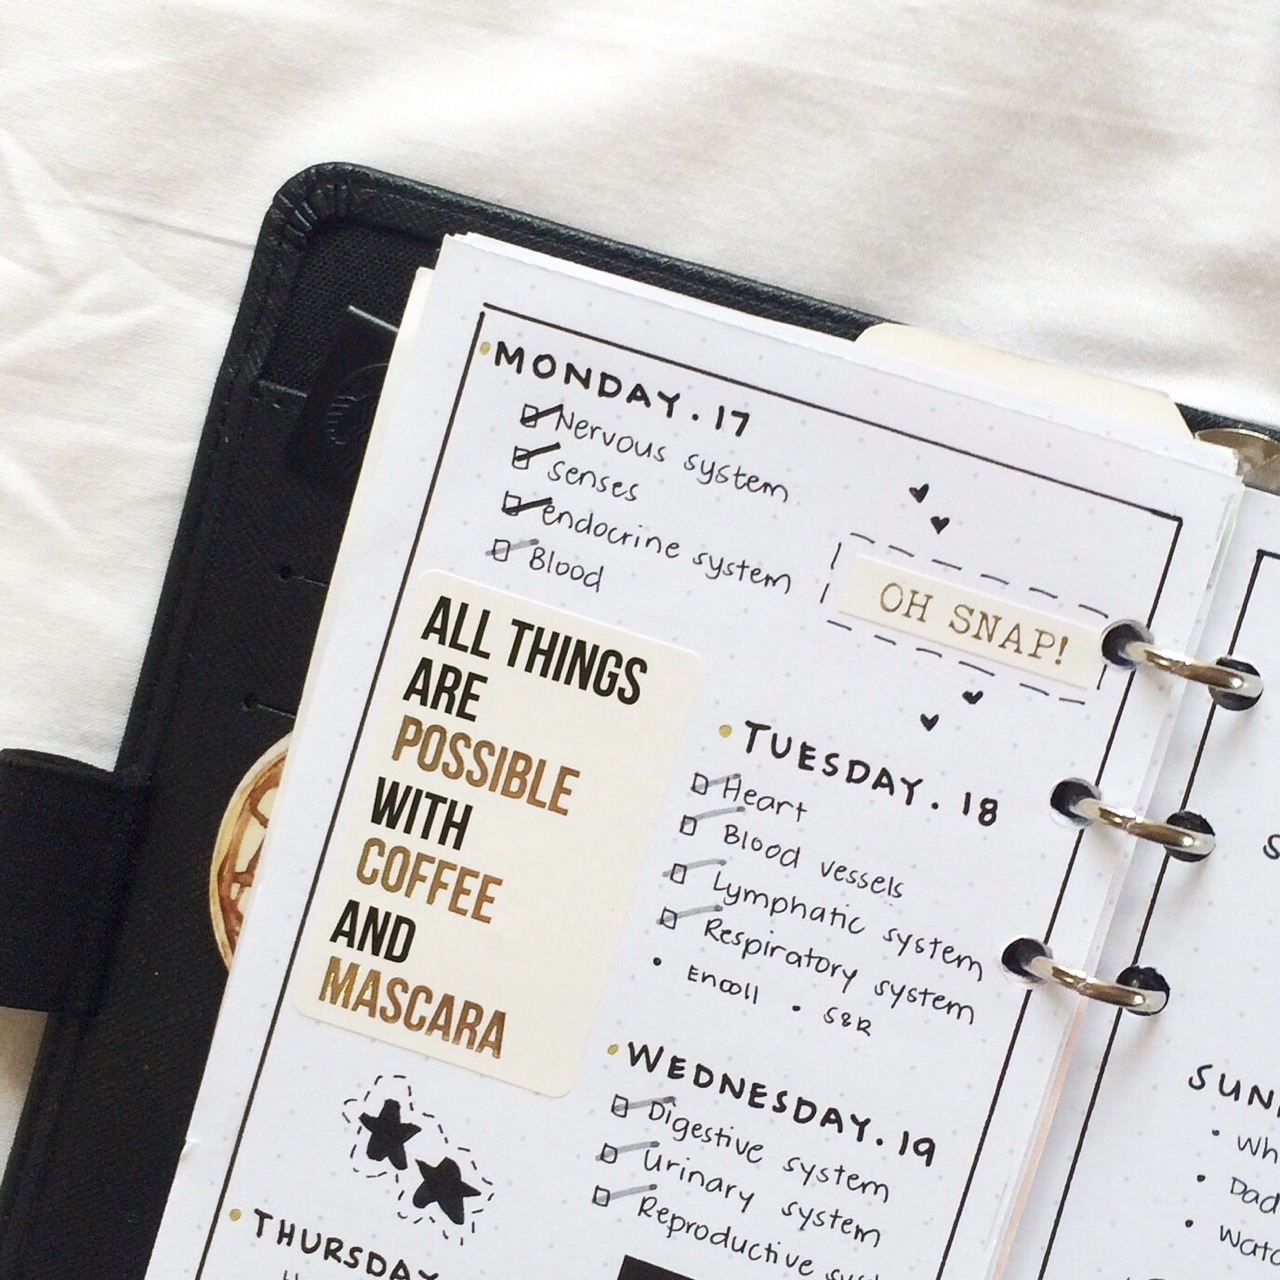 MONDAY. 17
Nervous system
senses
endocrine system
Blood
OH SNAP!
ALL THINGS
ARE
POSSIBLE
WITH
COFFEE
AND
MASCARA
TUESDAY. 18
Heart
Blood vessels
Lymphatic system
Respiratory system
• Enroll • S&R
WEDNESDAY. 19
Digestive system
Urinary system
Reproductive
THURSDAY
• Dad